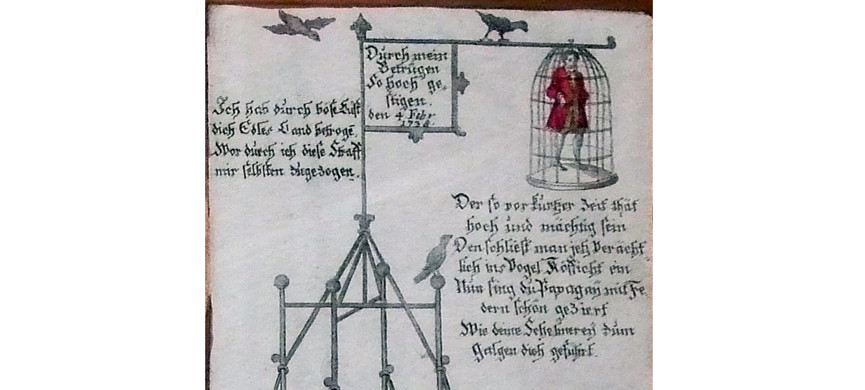 Durch mein
Betrugen
So hoch ge-
stigen.
den 4 Febr
1738.
Ich hab durch böse List
dich Edles Land betroge.
Wor durch ich diese Straff
mir selbsten zugezogen.
Der so vor kurtzer Zeit thät
hoch und mächtig sein
Den schliest man jetz verächt-
lich ins Vogel Köfficht ein
Nun sing du Papagaÿ mit Fe-
dern schön geziert
Wie deine Schelmereÿ zum
galgen dich geführt.